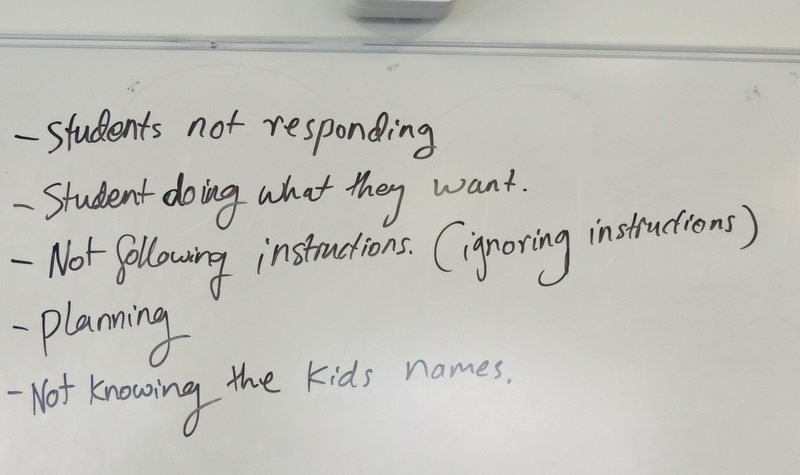 - Students not responding
- Student doing what they want.
- Not following instructions. (ignoring instructions)
- Planning
- Not knowing the kids names.